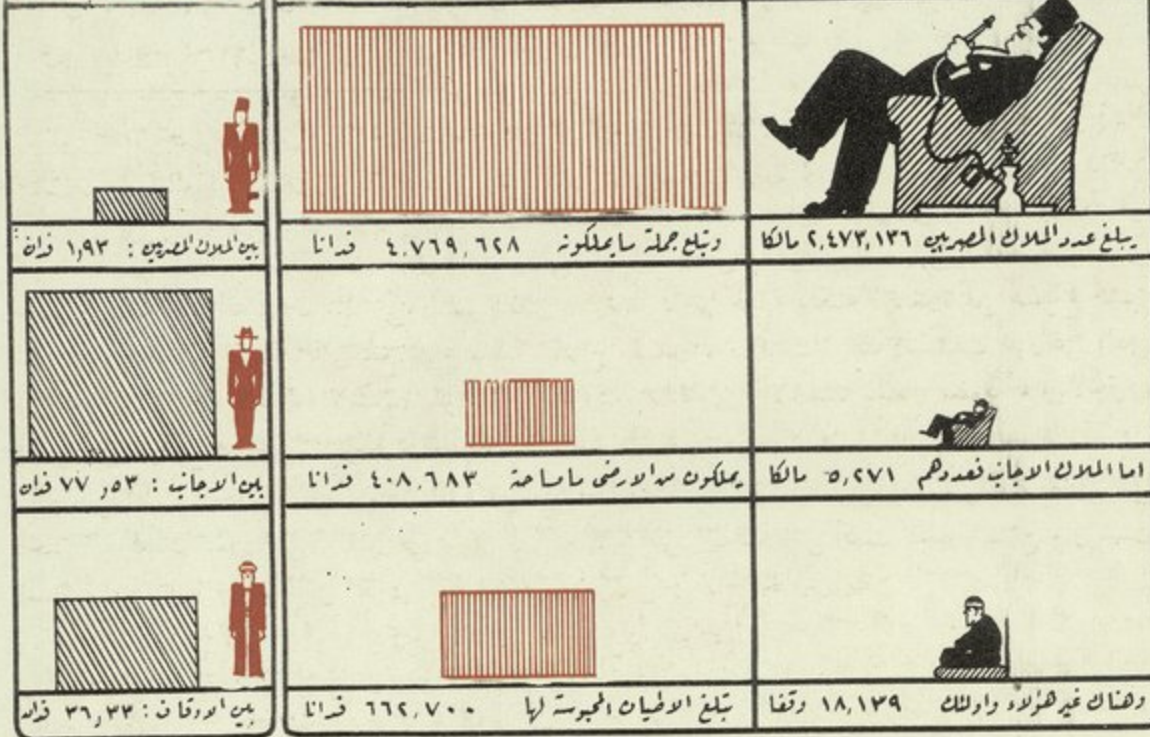 يبلغ عدد الملاك المصريين ٢,٤٧٣,١٣٦ مالكا
وتبلغ جملة ما يملكونه ٤,٧٦٩,٦٢٨ فدانا
بين الملاك المصريين : ١,٩٣ فدان
اما الملاك الاجانب فعددهم ٥,٢٧١ مالكا
يملكون من الارض ما مساحته ٤٠٨,٦٨٣ فدانا
بين الاجانب : ٧٧,٥٣ فدان
وهناك غير هؤلاء واولئك ١٨,١٣٩ وقفا
تبلغ الاطيان المحبوسة لها ٦٦٢,٧٠٠ فدانا
بين الاوقاف : ٣٦,٣٣ فدان